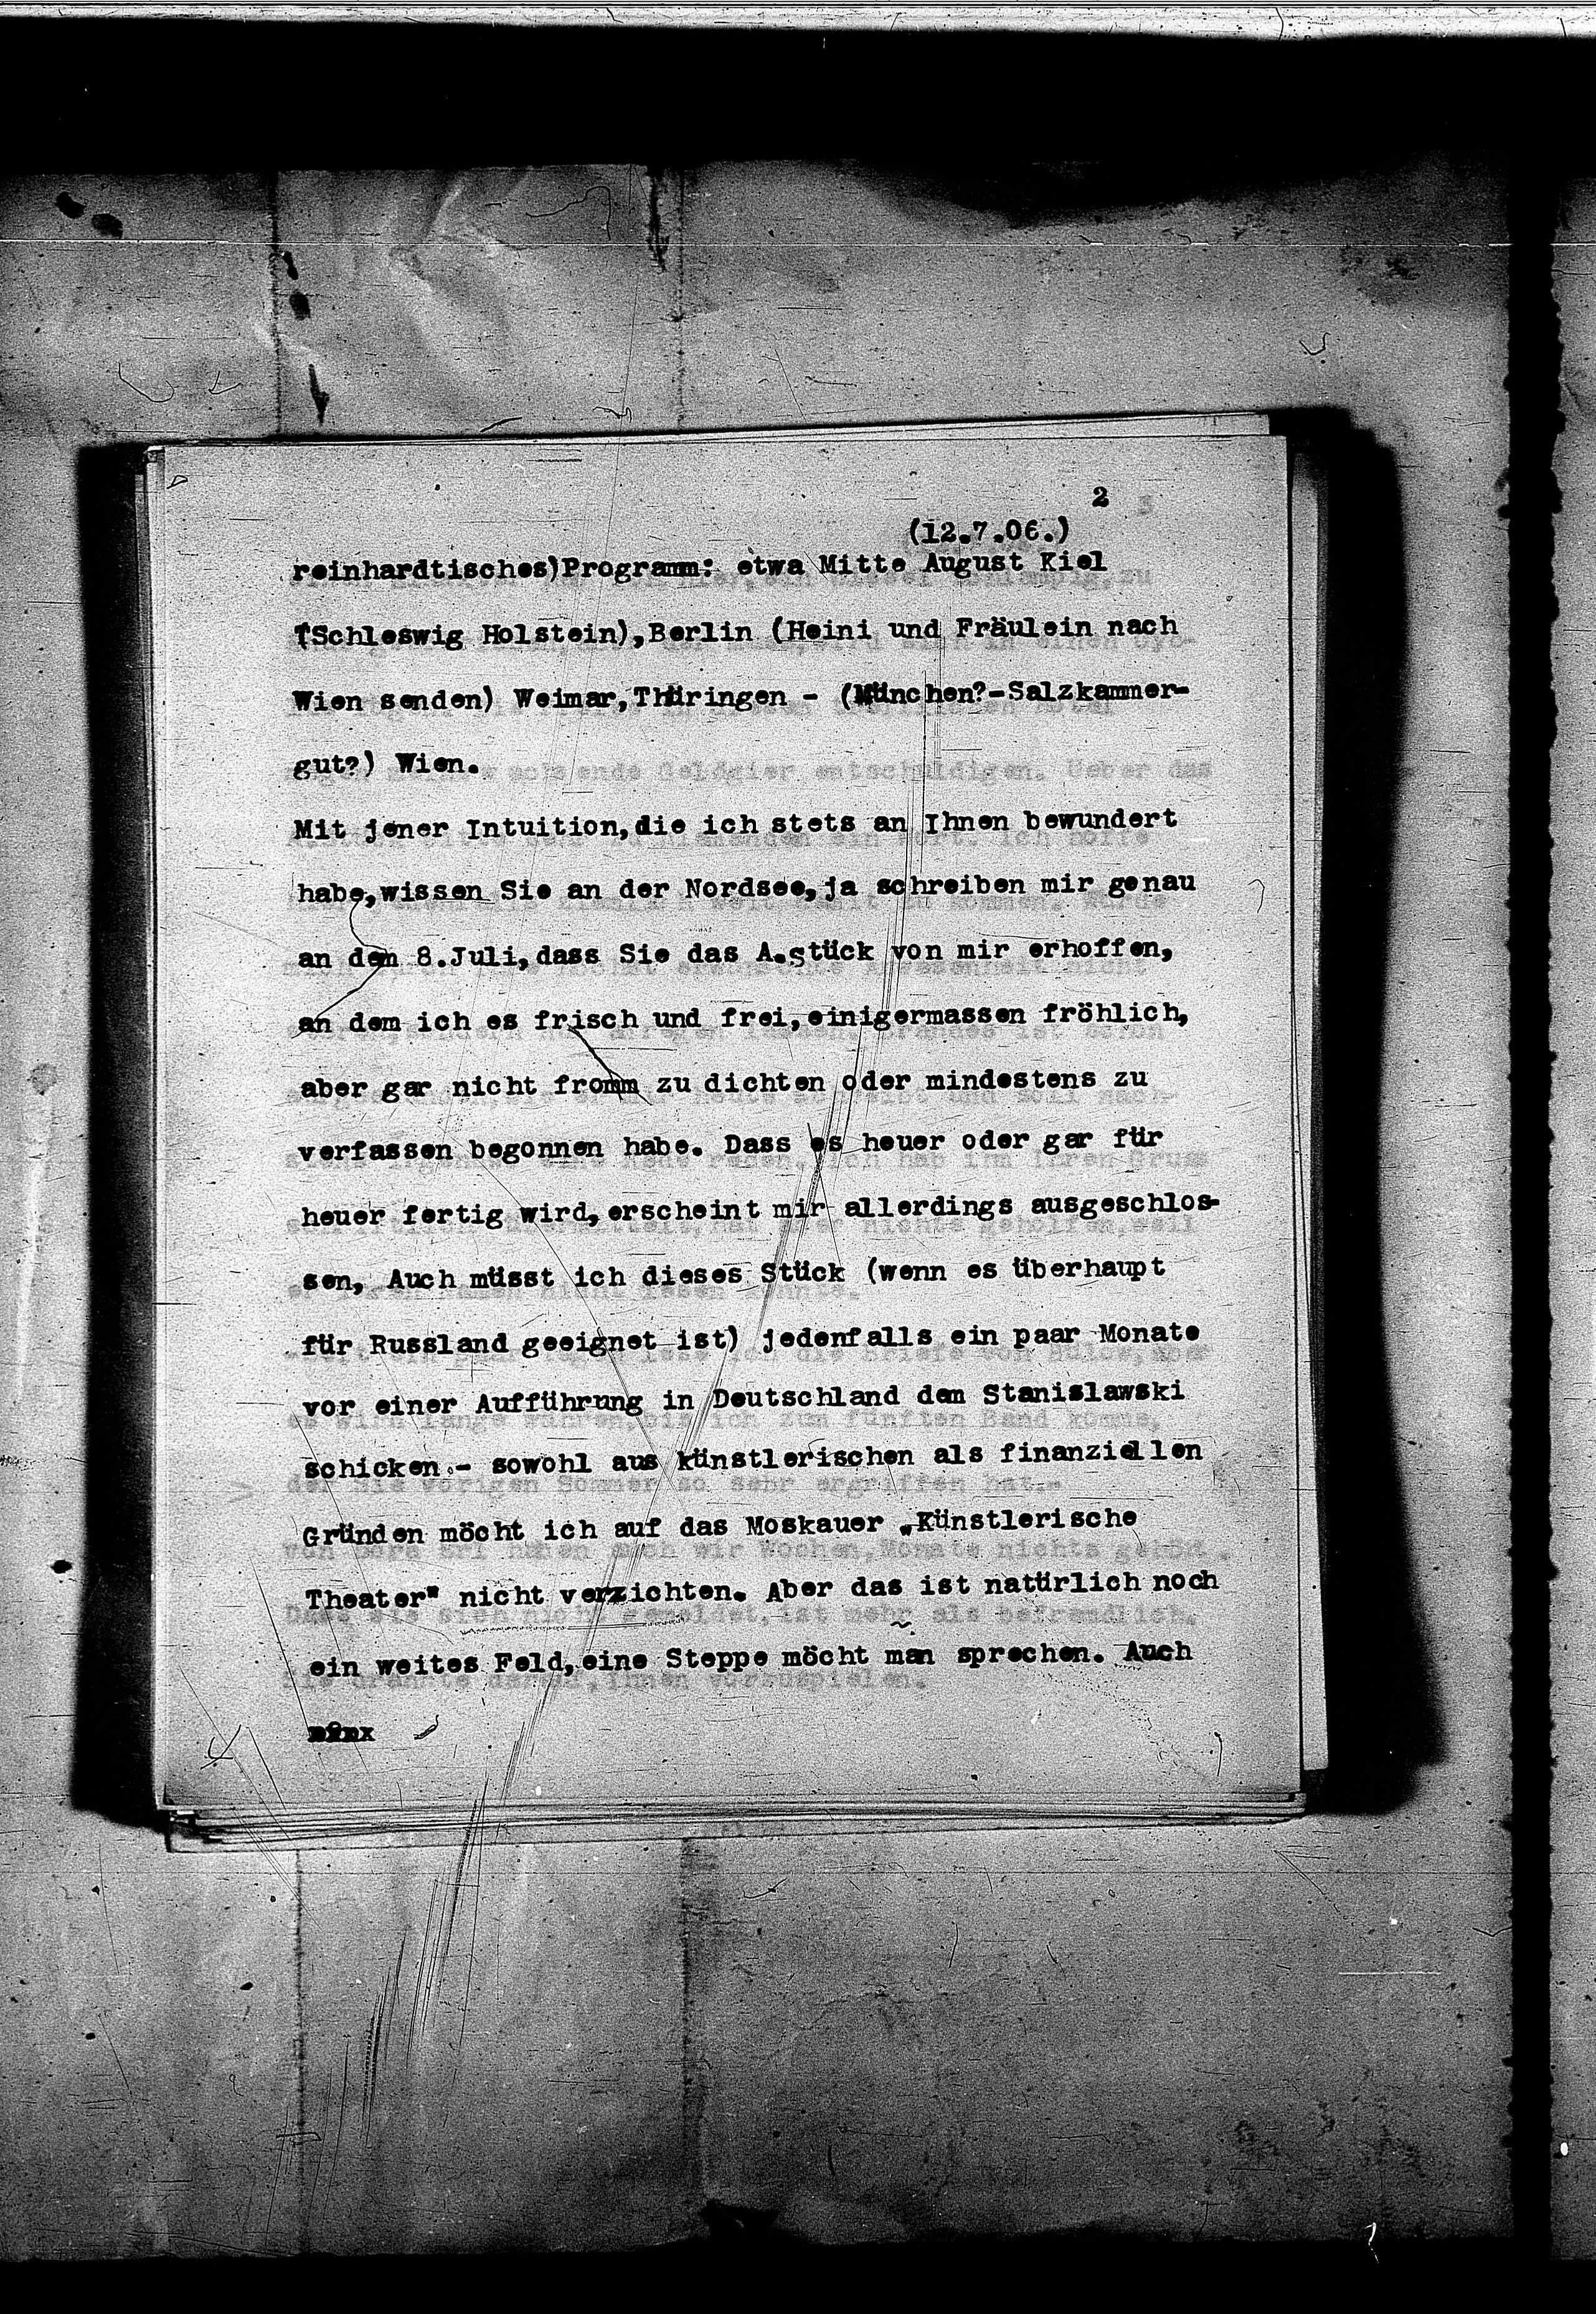 2
(12.7.06.)
reinhardtisches)Programm: etwa Mitte August Kiel
(Schleswig Holstein),Berlin (Heini und Fräulein nach
Wien senden) Weimar,Thüringen - (München?-Salzkammer-
gut?) Wien.
Mit jener Intuition,die ich stets an Ihnen bewundert
habe,wissen Sie an der Nordsee,ja schreiben mir genau
an dem 8.Juli,dass Sie das A.stück von mir erhoffen,
an dem ich es frisch und frei,einigermassen fröhlich,
aber gar nicht fromm zu dichten oder mindestens zu
verfassen begonnen habe. Dass es heuer oder gar für
heuer fertig wird,erscheint mir allerdings ausgeschlos-
sen, Auch müsst ich dieses Stück (wenn es überhaupt
für Russland geeignet ist) jedenfalls ein paar Monate
vor einer Aufführung in Deutschland dem Stanislawski
schicken.- sowohl aus künstlerischen als finanziellen
Gründen möcht ich auf das Moskauer „Künstlerische
Theater" nicht verzichten. Aber das ist natürlich noch
ein weites Feld,eine Steppe möcht man sprechen. Auch